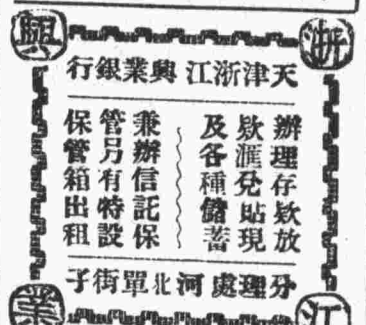 浙江興業
天津浙江興業銀行
辦理存欵放
欵滙兌貼現
及各種儲蓄
兼辦信託保
管另有特設
保管箱出租
分理處河北單街子